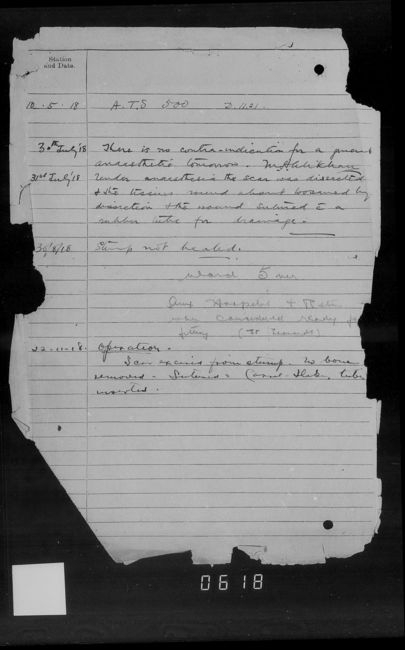 Station
and Date.
10 . 5 . 18 A.T.S 500 D.1121.
30th July '18 There is no contra-indication for a general
anaesthetic tomorrow.
31st July '18 Under anaesthesia the scar was dissected
& the tissues round about loosened by
dissection & the wound sutured c̄ a
rubber tube for drainage.
30/8/18 Stump not healed.
Ward 5
Aux Hospital &
when considered ready for
fitting
22-11-18. Operation.
Scar excised from stump. No bone
removed - Sutured - tube
inserted.
0618